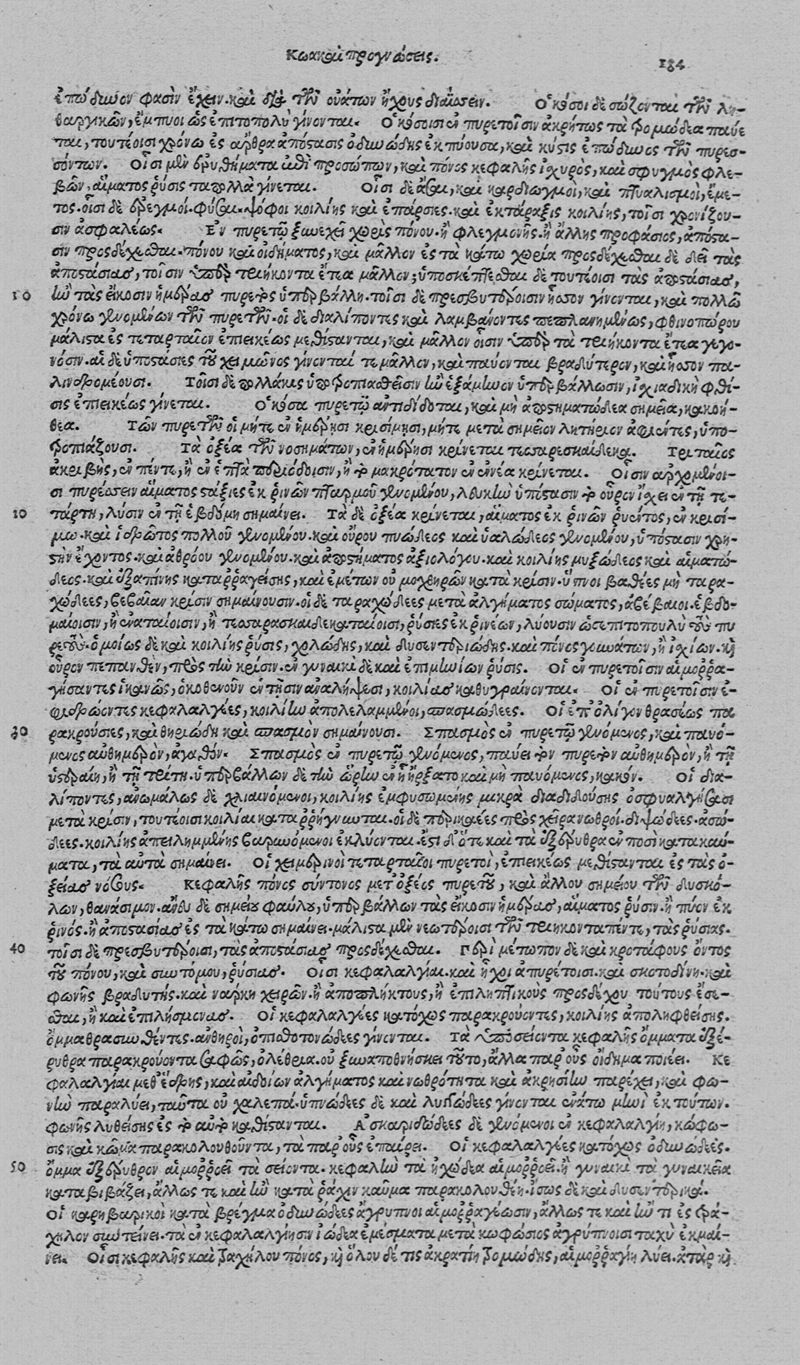 Κωακαὶ προγνώσεις.
184
ἐπώδυνον φασὶν ἔχειν. καὶ διὰ τῶν οὐάτων ἤχους διαΐσσειν. Ὁκόσοι δὲ σώζονται τῶν λη-
θαργικῶν, ἔμπυοι ὡς ἐπιτοπολὺ γίνονται. Ὁκόσοισι
χρόνῳ ἐς ἄρθρα ἀπόστασις ὀδυώδης ἐκπύουσα, καὶ κύστις ἐπώδυνος τῶν πυρεσ-
σόντων. Οἷσι μὲν ἐρυθήματα ἐπὶ προσώπων, καὶ πόνος κεφαλῆς ἰχυρὸς, καὶ σφυγμὸς φλε-
βῶν, αἵματος ῥύσις ταπολλὰ γίνεται. Οἷσι δὲ ἆσαι, καὶ καρδιωγμοὶ, καὶ πτυαλισμοὶ, ἔμε-
τος. οἷσι δὲ ἐρεγμοὶ. φῦσαι. ψόφοι κοιλίης καὶ ἐπάρσιες. καὶ ἐκτάραξις κοιλίης, τοῖσι χρονίζου-
σιν ἀσφαλέως. Ἐν πυρετῷ ξυνεχεῖ χωρὶς πόνου. ἢ φλεγμονῆς. ἢ ἄλλης προφάσιος, ἀπόστα-
σιν προσδέχεσθαι. πόνου καὶ οἰδήματος, καὶ μᾶλλον ἐς τὰ κάτω χωρία προσδέχεσθαι δὲ δεῖ τὰς
ἀποστάσιας, τοῖσιν ὑπὲρ τριήκοντα ἔτεα μᾶλλον; ὑποσκέπτεσθαι δὲ τουτέοισι τὰς ἀποστάσιας,
10 ἢν τὰς εἴκοσιν ἡμέρας πυρετὸς ὑπερβάλλῃ. τοῖσι δὲ πρεσβυτέροισιν ἧσσον γίνονται, καὶ πολλῷ
χρόνῳ γινομένων τῶν πυρετῶν. οἱ δὲ διαλίποντες καὶ λαμβάνοντες πεπλανημένως, φθινοπώρου
μάλιστα ἐς τεταρταῖον ἐπιεικέως μεθίστανται, καὶ μᾶλλον οἷσιν ὑπὲρ τὰ τριήκοντα ἔτεα γεγό-
νασιν. αἱ δὲ ὑποστάσιες τοῦ χειμῶνος γίνονταί τε μᾶλλον, καὶ παύονται βραδύτερον, καὶ ἧσσον πα-
λινδρομέουσι. Τοῖσι δὲ πολλάκις ὑποτροπιασθεῖσιν ἢν ἑξάμηνον ὑπερβάλλωσιν, ἰσχιαδικὴ φθί-
σις ἐπιεικέως γίνεται. Ὁκόσα πυρετῷ ἀντιδίδοται, καὶ μὴ ἀποστηματώδεα σημεῖα, κακοή-
θεα. Τῶν πυρετῶν οἱ μήτε ἐν ἡμέρῃσι κρισίμῃσι, μήτε μετὰ σημεῖον λητήριον ἀφιέντες, ὑπο-
τροπιάζουσι. Τὰ ὀξέα τῶν νοσημάτων, ἐν ἡμέρῃσι κρίνεται τεσσαρεσκαίδεκα. Τριταῖος
ἀκριβὴς, ἐν πέντε, ἢ ἐν ἑπτὰ περιόδοισιν, ἢ τὸ μακρότατον ἐν ἐννέα κρίνεται. Οἷσιν ἀρχομένοι-
σι πυρέσσειν αἵματος στάξιες ἐκ ῥινῶν πταρμοῦ γινομένου, λευκὴν ὑπόστασιν τὸ οὖρον ἴσχει ἐν τῇ τε-
20 τάρτῃ, λύσιν ἐν τῇ ἑβδόμῃ σημαίνει. Τὰ δὲ ὀξέα κρίνεται, αἵματος ἐκ ῥινῶν ῥυέντος, ἐν κρισί-
μῳ. καὶ ἱδρῶτος πολλοῦ γινομένου. καὶ οὔρου πυώδεος καὶ ὑαλώδεος γινομένου, ὑπόστασιν χρη-
στὴν ἔχοντος. καὶ ἀθρόου γινομένου. καὶ ἀποστήματος ἀξιολόγου. καὶ κοιλίης μυξώδεος καὶ αἱματώ-
δεος. καὶ ἐξαπίνης καταρραγείσης, καὶ ἐμέτων οὐ μοχθηρῶν κατὰ κρίσιν. ὕπνοι βαθέες μὴ ταρα-
χώδεες, βεβαίαν κρίσιν σημαίνουσιν. οἱ δὲ ταραχώδεες μετὰ ἀλγήματος σώματος, ἀβέβαιοι. ἑβδο-
μαίοισιν, ἢ ἐναταίοισιν, ἢ τεσσαρεσκαιδεκαταίοισι, ῥύσιες ἐκ ῥινέων, λύουσιν ὡς ἐπιτοπουλὺ τοῦ πυ
ρετοῦ. ὁμοίως δὲ καὶ κοιλίης ῥύσις, χολώδης, καὶ δυσεντεριώδης. καὶ πόνος γουνάτων, ἢ ἰσχίων. καὶ
οὖρον πεπανθὲν, πρὸς τὴν κρίσιν. ἐν γυναικὶ δὲ καὶ ἐπιμηνίων ῥύσις. Οἱ ἐν πυρετοῖσιν αἱμορρα-
γήσαντες ἱκανῶς, ὁκοθενοῦν ἐν τῇσιν ἀναλήψεσι, κοιλίας καθυγραίνονται. Οἱ ἐν πυρετοῖσιν ἐ-
φιδρῶοντες κεφαλαλγέες, κοιλίην ἀπολελαμμένοι, σπασμώδεες. Οἱ ἐπ' ὀλίγον θρασέως πα
30 ρακρούσιες, καὶ θηριώδη καὶ σπασμὸν σημαίνουσι. Σπασμὸς ἐν πυρετῷ γινόμενος, καὶ παυό-
μενος αὐθημερὸν, ἀγαθόν. Σπασμὸς ἐν πυρετῷ γινόμενος, παύει τὸν πυρετὸν αὐθημερὸν, ἢ τῇ
ὑστεραίῃ, ἢ τῇ τρίτῃ. ὑπερβάλλων δὲ τὴν ὥρην ἐν ᾗ ἤρξατο καὶ μὴ παυόμενος, κακόν. Οἱ δια-
λίποντες, ἀνωμάλως δὲ χλιαινόμενοι, κοιλίης ἐμφυσωμένης μικρὰ διαδιδούσης ὀσφυαλγήσασι
μετὰ κρίσιν, τουτέοισι κοιλίαι καταρρήγνυνται. οἱ δὲ περικαέες πρὸς χεῖρα νωθροί. διψώδεες. ἀσώ-
δεες. κοιλίης ἀπειλημμένης βαρυνόμενοι ἐκλύονται. ἔστι δ' ὅτε καὶ τὰ ἐξέρυθρα ἐν ποσὶ κατακαύ-
ματα, τὰ αὐτὰ σημαίνει. Οἱ χειμερινοὶ τεταρταῖοι πυρετοὶ, ἐπιεικέως μεθίστανται ἐς τὰς ὀ-
ξείας νόσους. Κεφαλῆς πόνος σύντονος μετ' ὀξέος πυρετοῦ, καὶ ἄλλου σημείου τῶν δυσκό-
λων, θανάσιμον. ἄνευ δὲ σημείου φαύλου, ὑπερβάλλων τὰς εἴκοσιν ἡμέρας, αἵματος ῥύσιν. ἢ πύον ἐκ
ῥινὸς. ἢ ἀποστάσιας ἐς τὰ κάτω σημαίνει. μάλιστα μὲν νεωτέροισι τῶν τριηκονταπέντε, τὰς ῥύσιας.
40 τοῖσι δὲ πρεσβυτέροισι, τὰς ἀποστάσιας προσδέχεσθαι. Περὶ μέτωπον δὲ καὶ κροτάφους ὄντος
τοῦ πόνου, καὶ συντόμου, ῥύσιας. Οἷσι κεφαλαλγίαι. καὶ ἦχοι ἀπυρέτοισι. καὶ σκοτοδίνη. καὶ
φωνῆς βραδυτής. καὶ νάρκη χειρῶν. ἢ ἀποπλήκτους, ἢ ἐπιληπτικοὺς προσδέχου τούτους ἔσε-
σθαι, ἢ καὶ ἐπιλήσμονας. Οἱ κεφαλαλγέες κατόχως παρακρούοντες, κοιλίης ἀποληφθείσης.
ὄμμα θρασυνθέντες. ἀνθηροὶ, ὀπισθοτονώδεες γίνονται. Τὰ ὑποσείοντα κεφαλῆς ὄμματα ἐξέ-
ρυθρα παρακρούοντα σαφῶς, ὀλέθρια. οὐ ξυναποθνήσκει τοῦτο, ἀλλὰ παρ' οὖς οἴδημα ποιέει. Κε
φαλαλγία μεθ' ἕδρης, καὶ αἰδοίων ἀλγήματος καὶ νωθρότητα καὶ ἀκρησίην παρέχει, καὶ φω-
νὴν παραλύει, ταῦτα οὐ χαλεπὰ. ὑπνώδεες δὲ καὶ λυγγώδεες γίνονται ἐνάτῳ μηνὶ ἐκ τούτων.
φωνῆς λυθείσης ἐς τὸ αὐτὸ καθίστανται. Ἀσκαριδώδεες δὲ γινόμενοι ἐν κεφαλαλγίῃ, κώφω-
σις καὶ κῶμα παρακολουθοῦντα, τὰ παρ' οὖς ἐπαίρει. Οἱ κεφαλαλγέες κατόχως ὀδυνώδεες.
50 ὄμμα ἐξέρυθρον αἱμορροεῖ τὰ σείοντα. κεφαλὴν τὰ ἠχώδεα αἱμορροεῖ. ἢ γυναικὶ τὰ γυναικεῖα
καταβιβάζει, ἄλλως τε καὶ ἢν κατὰ ῥάχιν καῦμα παρακολουθέῃ. ἴσως δὲ καὶ δυσεντερικοί.
Οἱ καρηβαρικοὶ κατὰ βρέγμα ὀδυνώδεες ἄγρυπνοι αἱμορραγέωσιν, ἄλλως τε καὶ ἤν τι ἐς τρά-
χηλον συντείνει. τὰ ἐν κεφαλαλγίῃσιν ἰώδεα ἐμέσματα μετὰ κωφώσιος ἀγρύπνοισι ταχὺ ἐκμαί-
νει. Οἷσι κεφαλῆς καὶ τραχήλου πόνος, καὶ ὅλου δέ τις ἀκρατίη τρομώδης, αἱμορραγίη λύει. ἀτὰρ καὶ